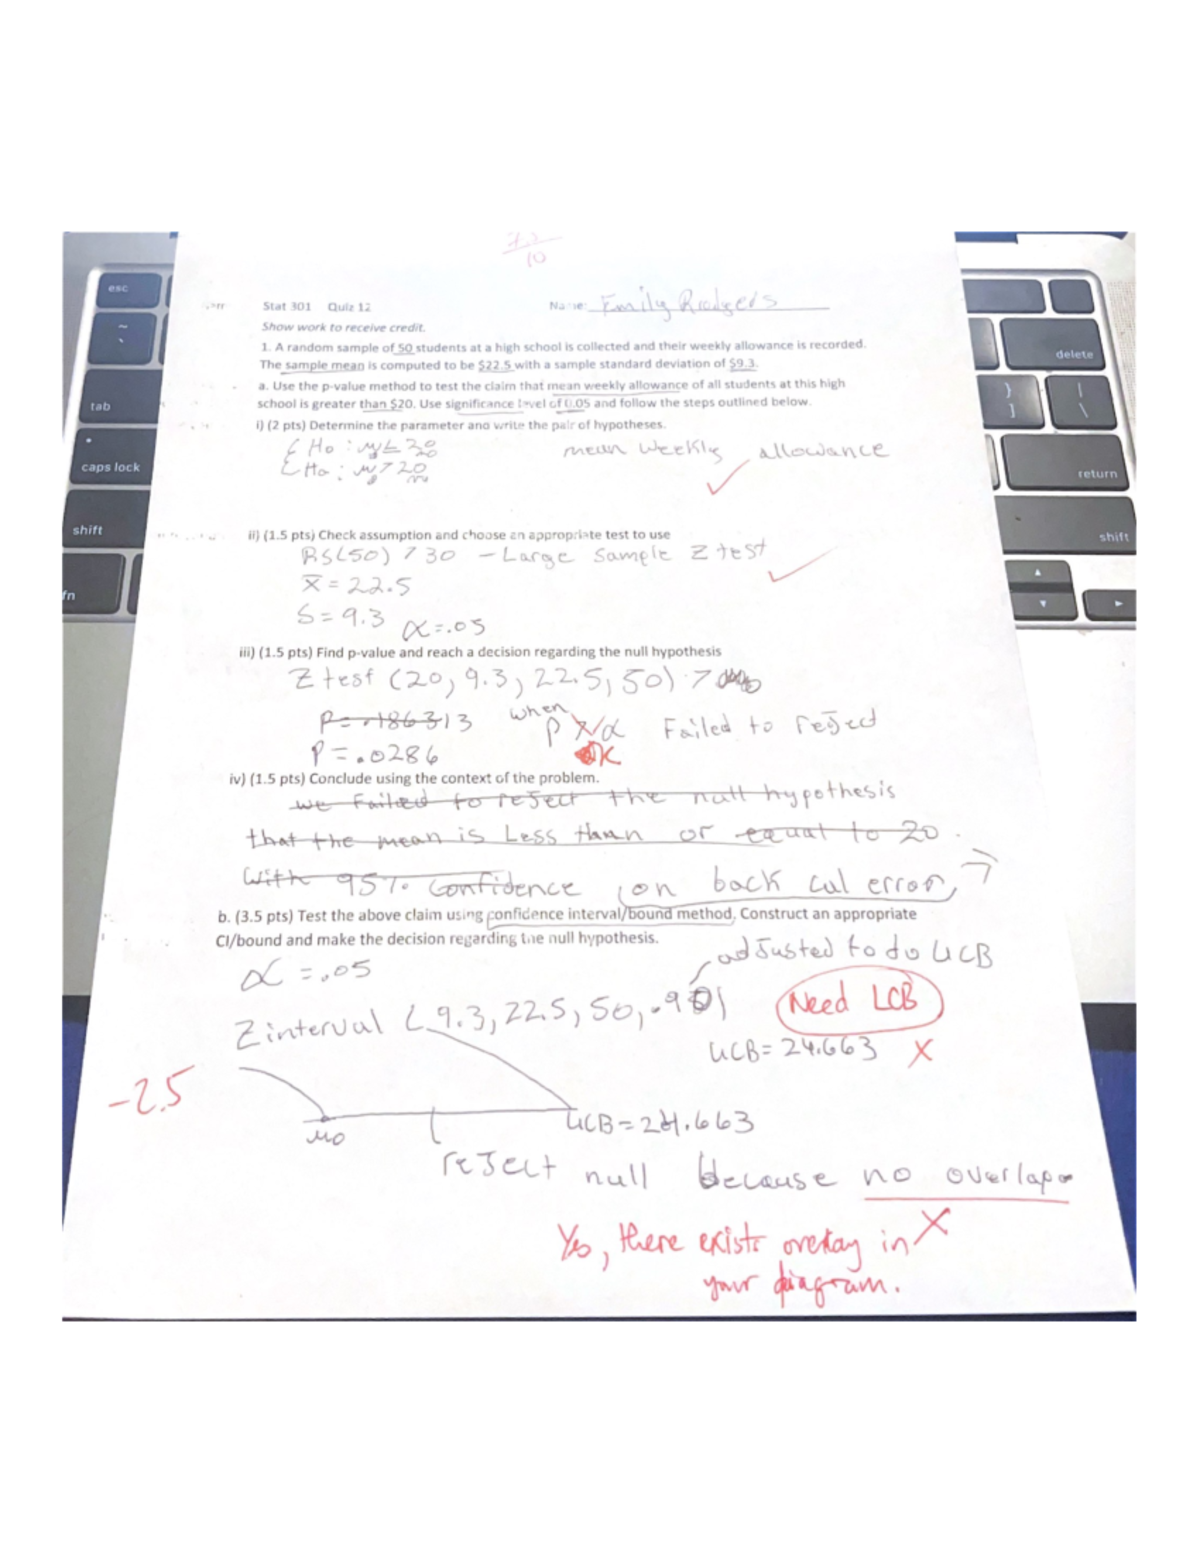 7.5
10
esc
~
`
tab
caps lock
shift
fn
delete
}
]
|
\
return
shift
Stat 301 Quiz 12 Name: Emily Rodgers
Show work to receive credit.
1. A random sample of 50 students at a high school is collected and their weekly allowance is recorded.
The sample mean is computed to be $22.5 with a sample standard deviation of $9.3.
a. Use the p-value method to test the claim that mean weekly allowance of all students at this high
school is greater than $20. Use significance level of 0.05 and follow the steps outlined below.
i) (2 pts) Determine the parameter and write the pair of hypotheses.
Ho : μ ≤ 20 mean weekly allowance
Ha : μ > 20
ii) (1.5 pts) Check assumption and choose an appropriate test to use
RS(50) > 30 - Large Sample Z test
x̄ = 22.5
S = 9.3 α = .05
iii) (1.5 pts) Find p-value and reach a decision regarding the null hypothesis
Z test (20, 9.3, 22.5, 50) >
P = .186313 when P > α Failed to reject
P = .0286
iv) (1.5 pts) Conclude using the context of the problem.
we Failed to reject the null hypothesis
that the mean is Less than or equal to 20.
With 95% Confidence on back cal error,
b. (3.5 pts) Test the above claim using confidence interval/bound method. Construct an appropriate
CI/bound and make the decision regarding the null hypothesis.
α = .05 adjusted to do UCB
Z interval (9.3, 22.5, 50, .90) Need LCB
UCB = 24.663 X
-2.5
μo UCB = 24.663
reject null because no overlap
Yes, there exists overlay in X
your diagram.